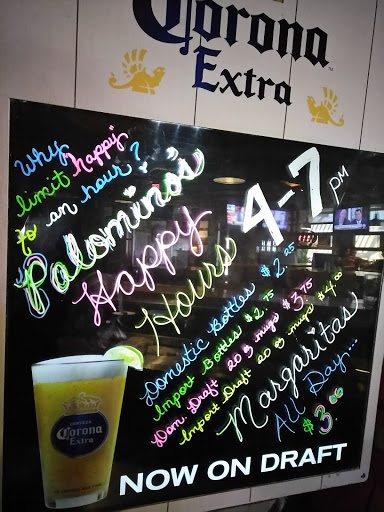 Corona
Extra
Why
limit happy
to an hour?
Palomino's
Happy
Hours
4-7 PM
Domestic Bottles $2.25
Import Bottles $2.75
Dom. Draft 20 oz mugs $3.75
Import Draft 20 oz mugs $4.00
Margaritas
All Day...
$3.00
CERVEZA
Corona
Extra
NOW ON DRAFT